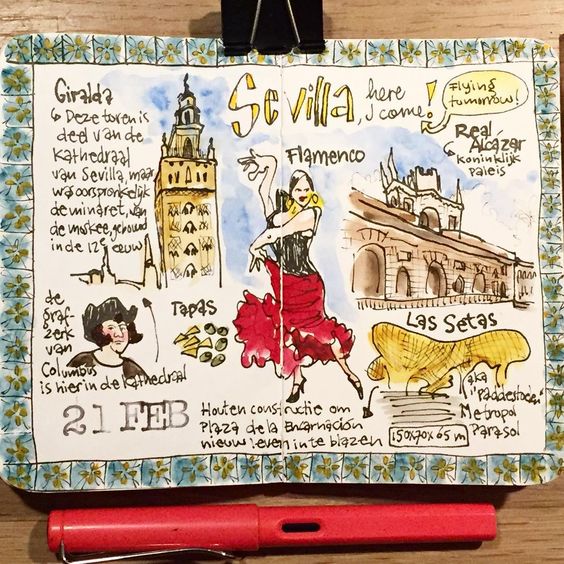 Sevilla, here
I come!
Flying
tomorrow!
Giralda
Deze toren is
deel van de
kathedraal
van Sevilla, maar
was oorspronkelijk
de minaret van
de moskee, gebouwd
in de 12e eeuw
Flamenco
Real
Alcázar
koninklijk
paleis
de
graf-
zerk
van
Columbus
is hier in de kathedraal
Tapas
Las Setas
aka
"Paddestoel"
Metropol
Parasol
150x70x65 m
21 FEB
Houten constructie om
Plaza de la Encarnación
nieuw leven in te blazen